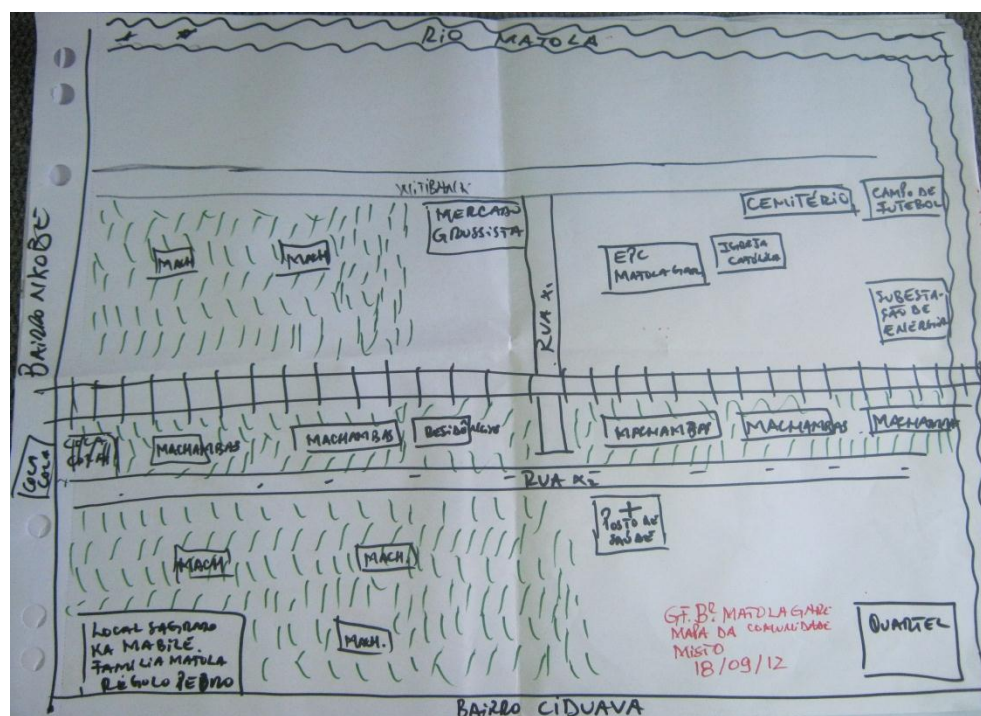 RIO MATOLA
WITIBANK
BAIRRO NIKOBE
MERCADO
GROSSISTA
RUA X1
CEMITÉRIO
CAMPO DE
FUTEBOL
MACH
MACH
EPC
MATOLAGARE
IGREJA
CATÓLICA
SUBESTA-
ÇÃO DE
ENERGIA
COCA
COLA
COCA
COLA
MACHAMBAS
MACHAMBAS
MACHAMBAS
MACHAMBAS
MACHAMBA
RUA X2
POSTO DE
SAÚDE
MACH
MACH.
MACH.
LOCAL SAGRADO
KA MABILE.
FAMILIA MATOLA
RÉGULO PEDRO
GF. Bº MATOLAGARE
MAPA DA COMUNIDADE
MISTO
18/09/12
QUARTEL
BAIRRO CIDUAVA